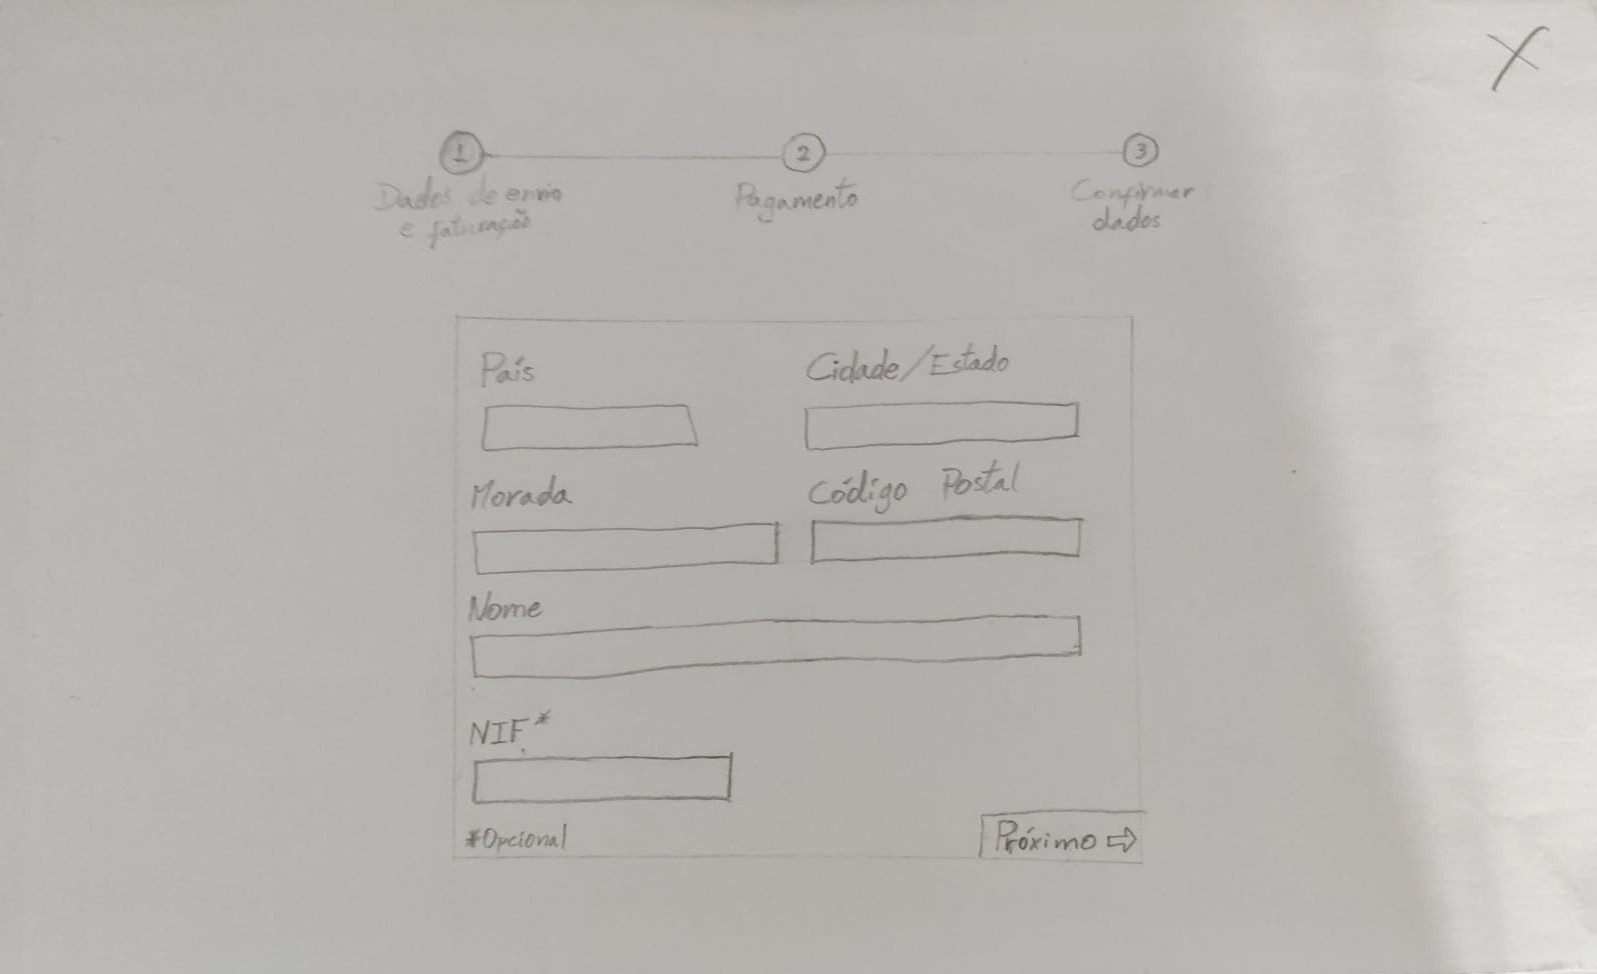 1
Dados de envio
e faturação
2
Pagamento
3
Confirmar
dados
País
Cidade/Estado
Morada
Código Postal
Nome
NIF*
*Opcional
Próximo ⇨